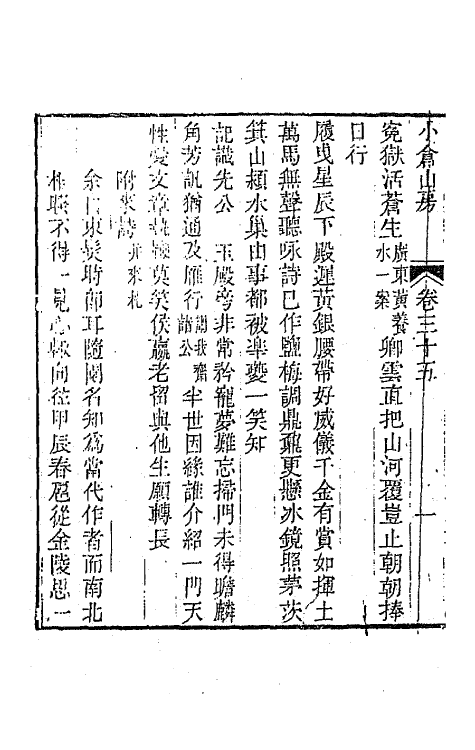 小倉山房　卷三十五　一
寃獄活蒼生廣東黃養水一案卿雲直把山河覆豈止朝朝捧
日行
履曳星辰下殿遲黃銀腰帶好威儀千金有賞如揮土
萬馬無聲聽咏詩已作鹽梅調鼎鼐更懸冰鏡照茅茨
箕山潁水巢由事都被夔一笑知
記識先公　玉殿旁非常矜寵夢難忘掃門未得瞻麟
角芳訊猶通及雁行謂我齋諸公半世因緣誰介紹一門天
性愛文章莫笑侯嬴老留與他生願轉長
附來詩并來札
余自束髮時卽耳隨園名知爲當代作者而南北
相睽不得一見心輒向往甲辰春扈從金陵思一